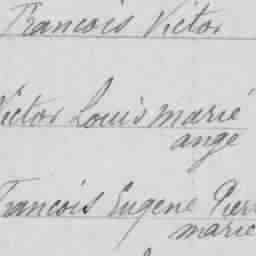 Francois Victor
Victor Louis marie
ange
Francois Eugene Pierr
marie